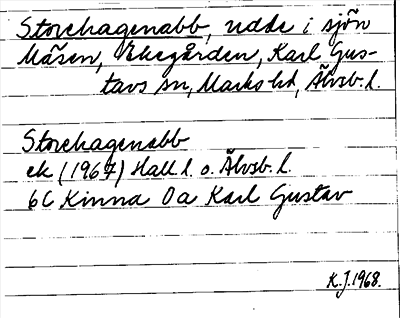 Storehagenabb, udde i sjön
Måsen, Ekegården, Karl Gus-
tavs sn, Marks hd, Älvsb. l.
Storehagenabb
ek (1967) Hall l. o. Älvsb. l.
6C Kinna 0a Karl Gustav
K.J. 1968.